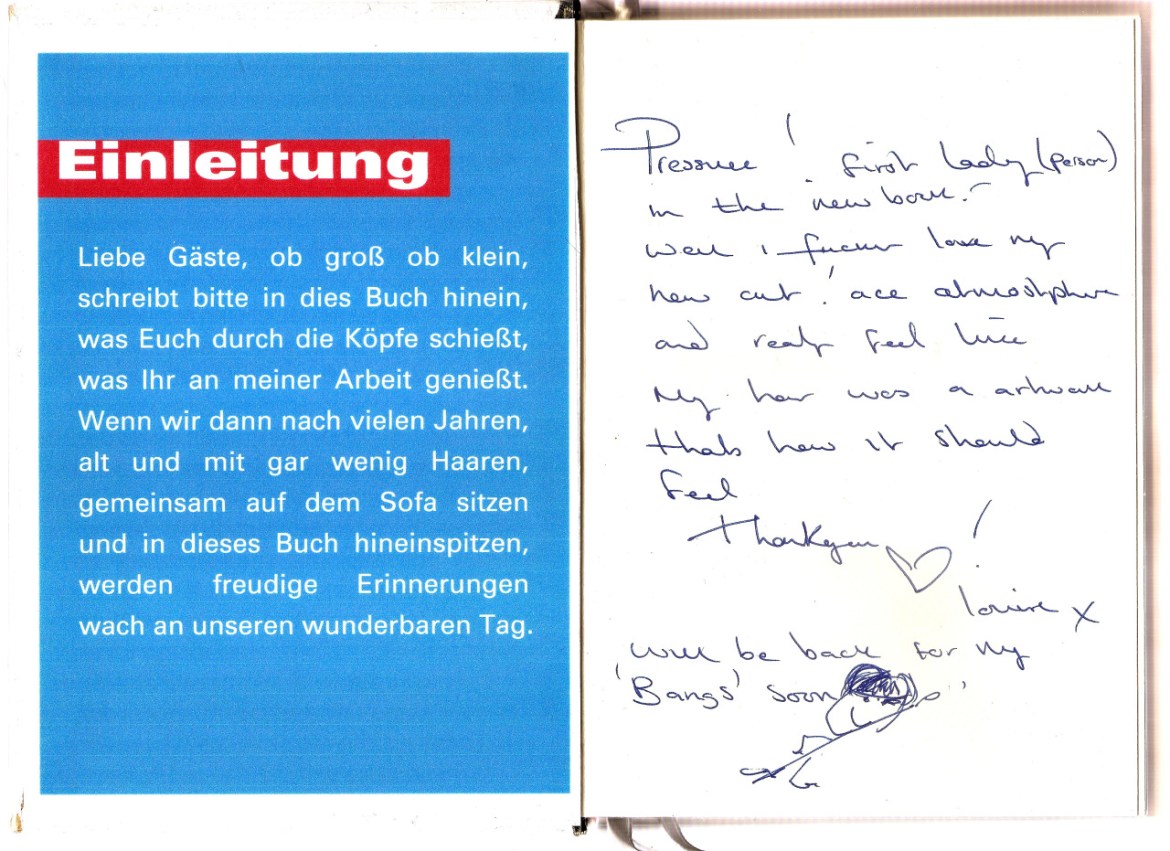 Einleitung
Liebe Gäste, ob groß ob klein,
schreibt bitte in dies Buch hinein,
was Euch durch die Köpfe schießt,
was Ihr an meiner Arbeit genießt.
Wenn wir dann nach vielen Jahren,
alt und mit gar wenig Haaren,
gemeinsam auf dem Sofa sitzen
und in dieses Buch hineinspitzen,
werden freudige Erinnerungen
wach an unseren wunderbaren Tag.
Pressure! first lady (person)
in the new book.
Well i love my
new cut! ace atmostphere
and realy feel like
My hair was a artwork
thats how it should
feel
Thankyou !
Louise x
Will be back for my
'Bangs' soon